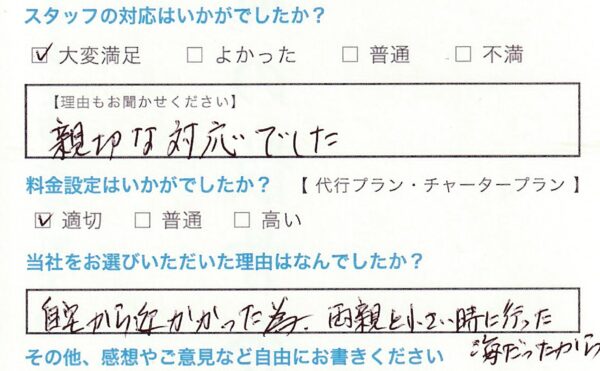 スタッフの対応はいかがでしたか？
☑ 大変満足 □ よかった □ 普通 □ 不満
【理由もお聞かせください】
親切な対応でした
料金設定はいかがでしたか？ 【 代行プラン・チャータープラン 】
☑ 適切 □ 普通 □ 高い
当社をお選びいただいた理由はなんでしたか？
自宅から近かかった為、両親と小さい時に行った
海だったから
その他、感想やご意見など自由にお書きください